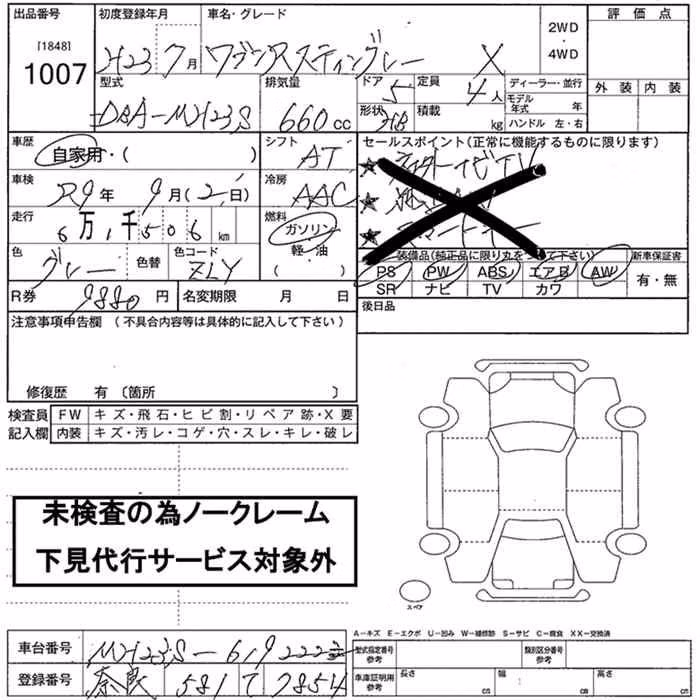 出品番号 初度登録年月 車名・グレード 評価点
[1848] 1007
H23 7月 ワゴンRスティングレー X
2WD・4WD
型式 排気量 ドア 定員 ディーラー・並行
DBA-MH23S 660cc 5 4人 モデル年式 年
外装 内装
形状 HB 積載 kg ハンドル 左・右
車歴 シフト セールスポイント(正常に機能するものに限ります)
自家用・( ) AT
車検 冷房
R9年 9月(2日) AAC
走行 燃料
6万1千506km ガソリン・軽油( )
色 色替 色コード
グレー ZLY
装備品(純正品に限り丸をつけて下さい) 新車保証書
PS PW ABS エアB AW 有・無
SR ナビ TV カワ
R券 9880円 名変期限 月 日
後日品
注意事項申告欄(不具合内容等は具体的に記入して下さい)
修復歴 有〔箇所 〕
検査員記入欄
FW キズ・飛石・ヒビ割・リペア跡・X要
内装 キズ・汚レ・コゲ・穴・スレ・キレ・破レ
未検査の為ノークレーム
下見代行サービス対象外
スペア
A−キズ E−エクボ U−凹み W−補修跡 S−サビ C−腐食 XX−交換済
車台番号 MH23S-619222
型式指定番号参考 類別区分番号参考
登録番号 奈良 581 て 7854
車庫証明用参考 長さ cm 幅 cm 高さ cm